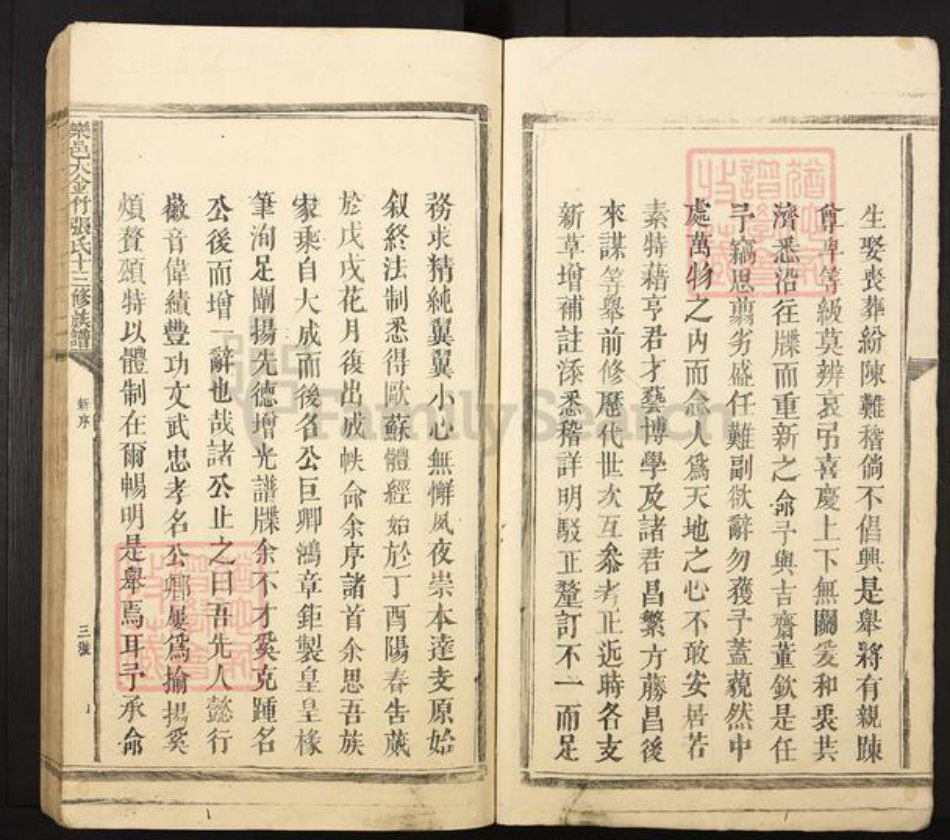 生娶喪葬紛陳難稽倘不倡興是舉將有親踈
會卑等級莫辨哀弔喜慶上下無關爰和衷共
濟悉沿往牒而重新之命予與吉齋董欽是任
予竊思翦劣盛任難副欲辭勿獲予蓋藐然中
處萬物之內而念人為天地之心不敢安居若
素特藉亨君才藝博學及諸君昌繁方藤昌後
來謀等舉前修歷代世次互叅考正近時各支
新草增補註添悉稽詳明駁正釐訂不一而足
務求精純翼翼小心無懈夙夜崇本達支原始
叙終法制悉得歐蘇體經始於丁酉陽春告蕆
於戊戌花月復出成帙命余序諸首余思吾族
家乘自大成而後名公巨卿鴻章鉅製皇皇椽
筆洵足闡揚先德增光譜牒余不才奚克踵名
公後而增一辭也哉諸公止之曰吾先人懿行
徽音偉績豐功文武忠孝名公鄉屢為揄揚奚
煩贅頌特以體制在爾暢明是舉焉耳予承命
樂邑大金竹張氏十三修族譜
新序
三號
FamilySearch